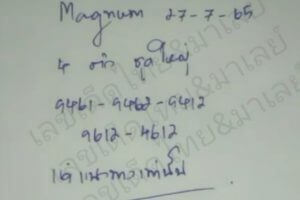 Magnum 27-7-65
4 ตัว ชุดใหญ่
9461-9462-9412
9612-4612
เลขเด็ดไทย&มาเลย์